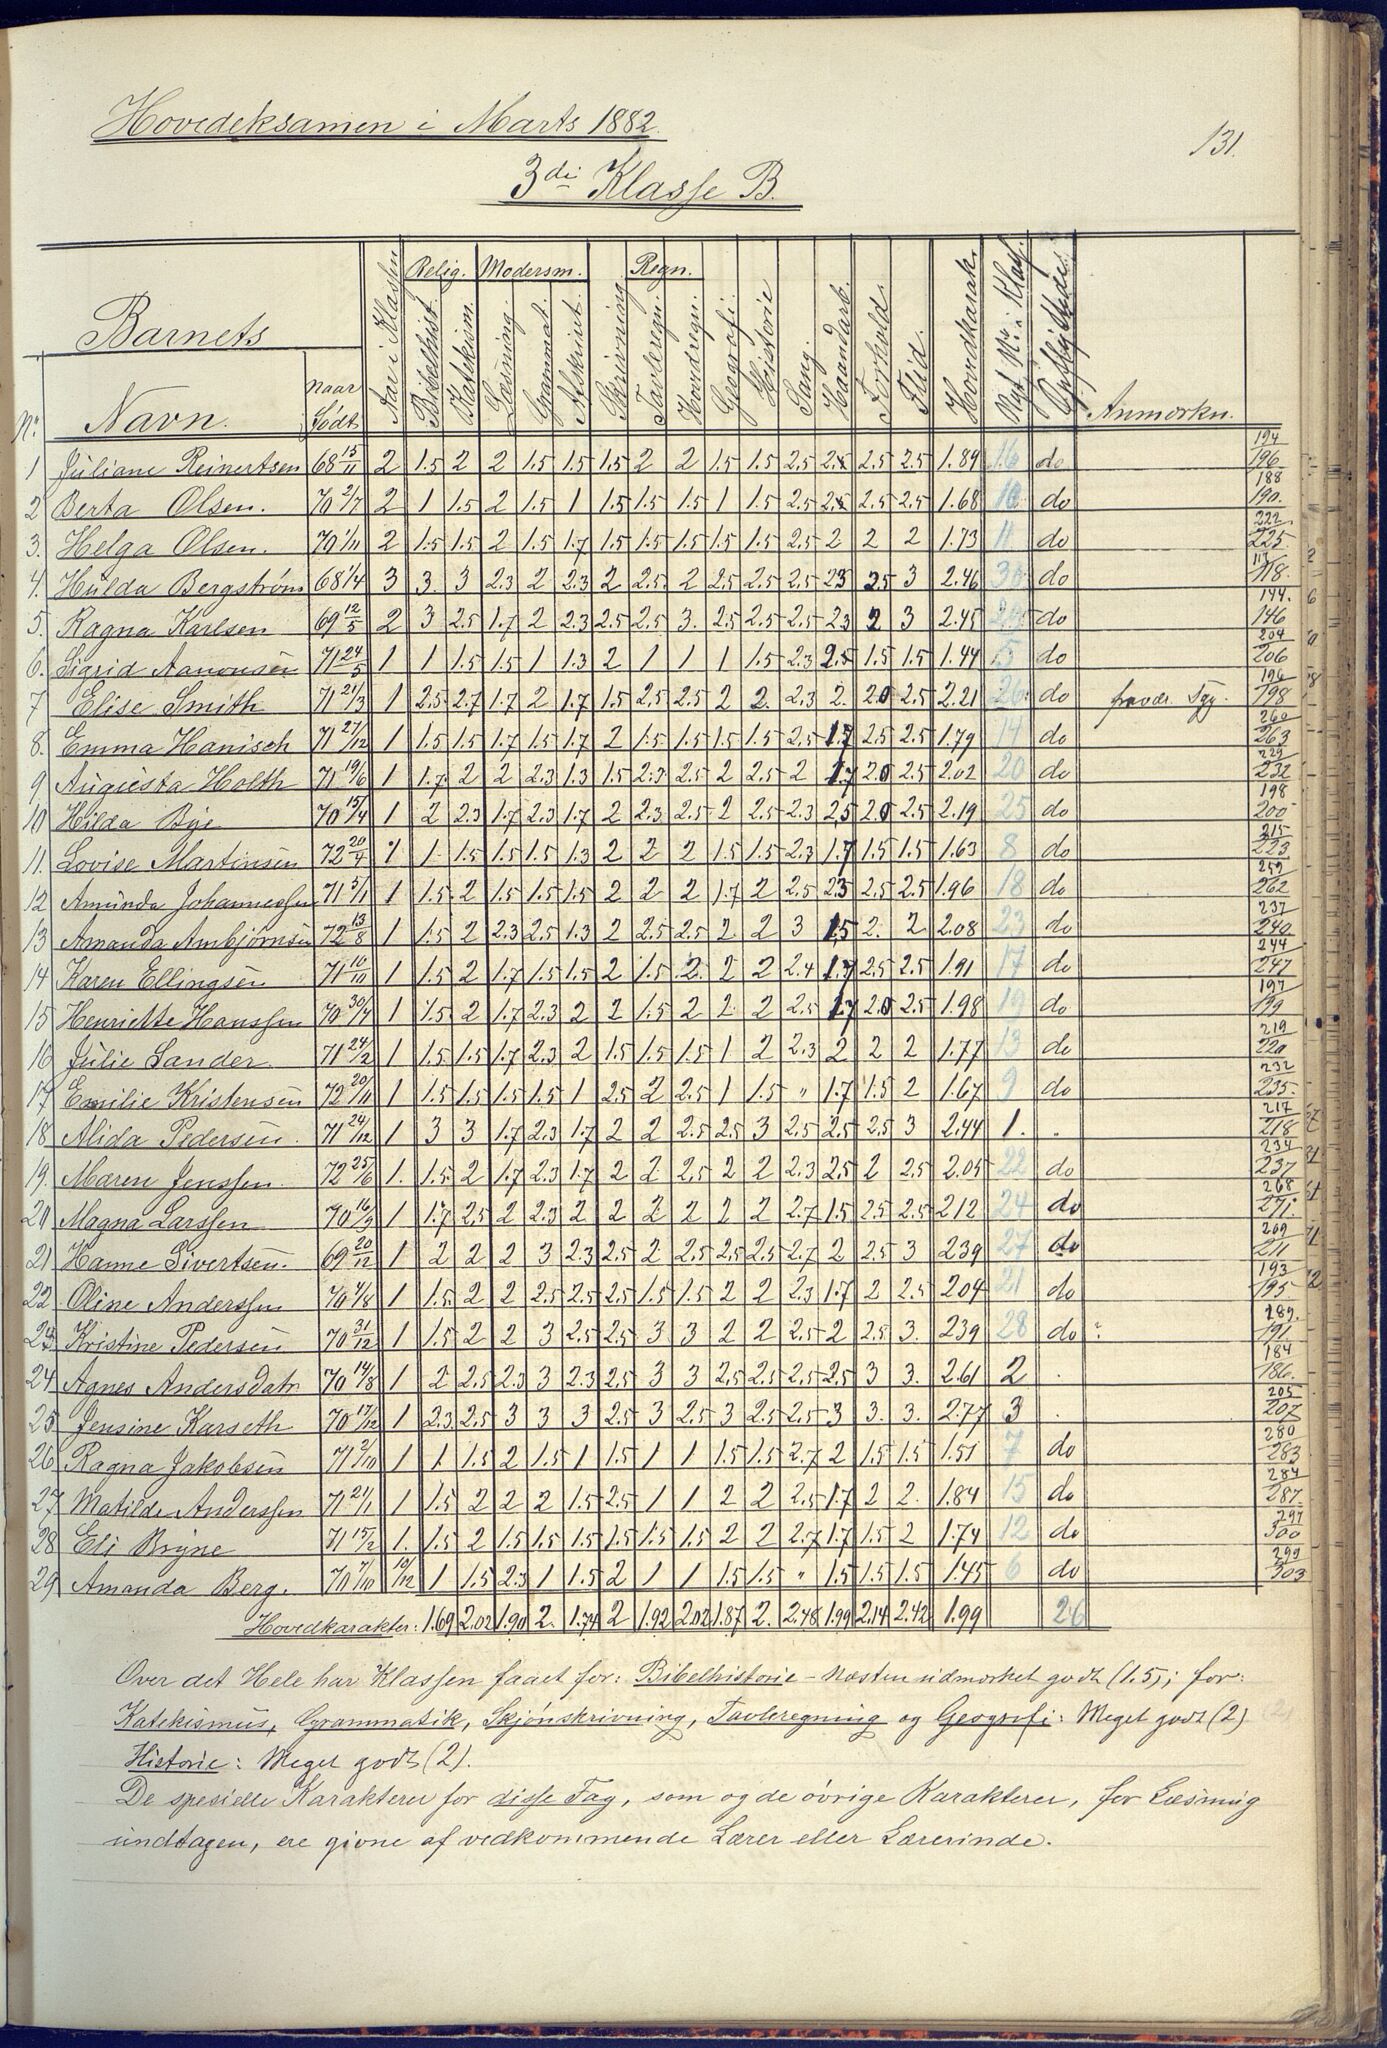 Hovedeksamen i Marts 1882.
131.
3die Klasse B.
Barnets
Relig. Modersm. Regn.
Nr. Navn. Naar Født Aar i Klassen Bibelhist. Katekism. Læsning. Grammat. Afskrivt. Skrivning Tavleregn. Hovedregn. Geografi. Historie Sang. Haandarb. Forhold. Flid. Hovedkarak. Nyt Nr. i Klas. Anmærkn.
1 Juliane Reinertsen 68 15/11 2 1.5 2 2 1.5 1.5 1.5 2 2 1.5 1.5 2.5 2.5 2.5 2.5 1.89 16 do 194/196
2 Berta Olsen. 70 2/7 2 1 1.5 2 1.5 1 1.5 1.5 1.5 1 1.5 2.5 2.5 2.5 2.5 1.68 10 do 188/190.
3. Helga Olsen. 70 1/11 2 1.5 1.5 2 1.5 1.7 1.5 1.5 1.5 1.5 1.5 2.5 2 2 2 1.73 11 do 222/225.
4. Hulda Bergstrøm 68 1/4 3 3. 3 2.3 2 2.3 2 2.5. 2 2.5 2.5 2.5 23 2.5 3 2.46 30 do 117/118.
5. Ragna Karlsen 69 12/5 2 3 2.5 1.7 2 2.3 2.5 2.5 3. 2.5 2.5 2.5 2.3 2 3 2.45 29 do 144./146
6. Sigrid Aanonsen 71 24/5 1 1 1.5 1.5 1 1.3 2 1 1 1 1.5 2.3 2.5 1.5 1.5 1.44 5 do 204/206
7 Elise Smith 71 21/3 1 2.5 2.7 1.7 2 1.7 1.5 2.5 2.5 2 2. 2.3 2. 20 2.5 2.21 26 do 196/198
8. Emma Hanisch 71 27/12 1 1.5 1.5 1.7 1.5 1.7 2 1.5 1.5 1.5 1.5 2.5 1.7 2.5 2.5 1.79 14 do 260/263
9 Augusta Holth 71 19/6 1 1.7 2 2 2.3 1.3 1.5 2.3 2.5 2 2.5 2 1.7 20 2.5 2.02 20 do 229/232
10 Hilda Bye 70 15/4 1 2 2.3 1.7 2.3 1.7 2 2.3 2.5 2 2.5 2.3 2,5 20 2.5 2.19 25 do 198/200
11. Lovise Martinsen 72 20/4 1 1 1.5 1.5 1.5 1.3 2 2 2 1.5 1.5 2.3 1.7 1.5 1.5 1.63 8 do 215/223
12 Amunda Johannessen 71 5/11 1 1.5 2 1.5 1.5 1.5 2 2 2 1.7 2 2.5 23 2.5 2.5 1.96 18 do 259/262
13 Amanda Ambjørnsen 72 13/8 1 1.5 2 2.3 2.5 1.3 2 2.5 2.5 2 2 3 1,5 2. 2 2.08 23 do 237/240
14 Karen Ellingsen 71 10/10 1 1.5 2 1.7 1.5 1.5 2 1.5 2. 2 2 2.4 1.7 2.5 2.5 1.91 17 do 244/247
15 Henriette Hanssen 70 30/4 1 1.5 2 1.7 2.3 2 2 1.5 2 2 2 2.5 1.7 20 2.5 1.98 19 do 197/199
16 Julie Sander. 71 24/2 1 1.5 1.5 1.7 2.3 2 1.5 1.5 1.5 1. 2 2.3 2 2 2 1.77 13 do 219/220
17 Emilie Kristensen 72 20/11 1 1.5 1.5 1.5 1.5 1 2.5 2 2.5 1 1.5 " 1.7 1.5 2 1.67 9 do 232/235.
18 Alida Pedersen. 71 24/12 1 3 3 1.7 2.3 1.7 2 2 2.5 2.5 3 2.5 2.5 2.5 3 2.44 1. . 217/218
19. Maren Jenssen. 72 25/6 1. 1.5 2 1.7 2.3 1.7 2 2 2.5 2 2 2.3 2.5 2 2.5 2.05 22 do 234/237
20 Magna Larssen 70 16/9 1 1.7 2.5 2 2.3 2 2 2 2 2 2 2.7 1.5 2.5 2.5 2.12 24 do 268/271.
21 Hanne Sivertsen. 69 20/12 1 2 2 2 3 2.3 2.5 2 2.5 2.5 2.5 2.7 2 2.5 3 239 27 do 209/211
22 Oline Anderssen 70 4/8 1 1.5 2 2 2.5 2.5 2.5 1.5 1.5 2 2 2.3 1.7 2 2.5 204 21 do 193/195.
23 Kristine Pedersen 70 31/12 1 1.5 2 2 3 2.5 2.5 3 3 2 2 2.5 2 2.5 3. 239 28 do 189./191.
24 Agnes Andersdatr 70 14/8 1 2 2.5 2.3 3 2.3 2.5 3 3 2.5 2.5 2.5 2.5 3 3. 261 2 . 184/186.
25 Jensine Karseth 70 17/12 1 2.3 2.5 3 3 3 2.5 3 2.5 3 2.5 2.5 3 3. 3. 277 3 . 205/207
26 Ragna Jakobsen 71 2/10 1 1 1.5 2 1.5 1 1.5 1 1 1.5 1.5 2.7 2 1.5 1.5 1.51 7 do 280/283
27 Matilde Anderssen 71 21/1 1 1.5 2 2 2 1.5 2.5 1 1 2 2 2.5 1.7 2 2. 1.84 15 do 284/287.
28 Eli Bryne 71 15/2 1. 1.5 2 1.5 1.5 1.5 1.5 1.5 1.5 2 2 2.7 1.7 1.5 2 1.74 12 do 297/300
29 Amanda Berg. 70 7/10 10/12 1 1.5 2.3 1 1.5 2 1 1 1.5 1.5 " 1.5 1.5 1.5 1.45 6 do 299/303
Hovedkarakter: 1.69 2.02 1.90 2. 1.74 2 1.92 2.02 1.87 2. 2.48 1.99 2.14 2.42 1.99 26
Over det Hele har Klassen faaet for: Bibelhistorie - Næsten udmærket godt (1.5); for:
Katekismus, Grammatik, Skjønskrivning, Tavleregning og Geografi: Meget godt (2)
Historie: Meget godt (2).
De spesielle Karakterer for disse Fag, som og de øvrige Karakterer, for Læsning
undtagen, ere givne af vedkommende Lærer eller Lærerinde.